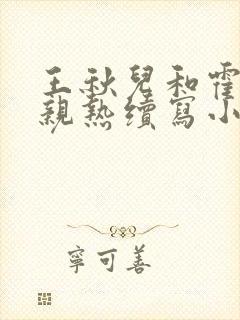 王秋兒和霍
親熱續寫小
寧可善